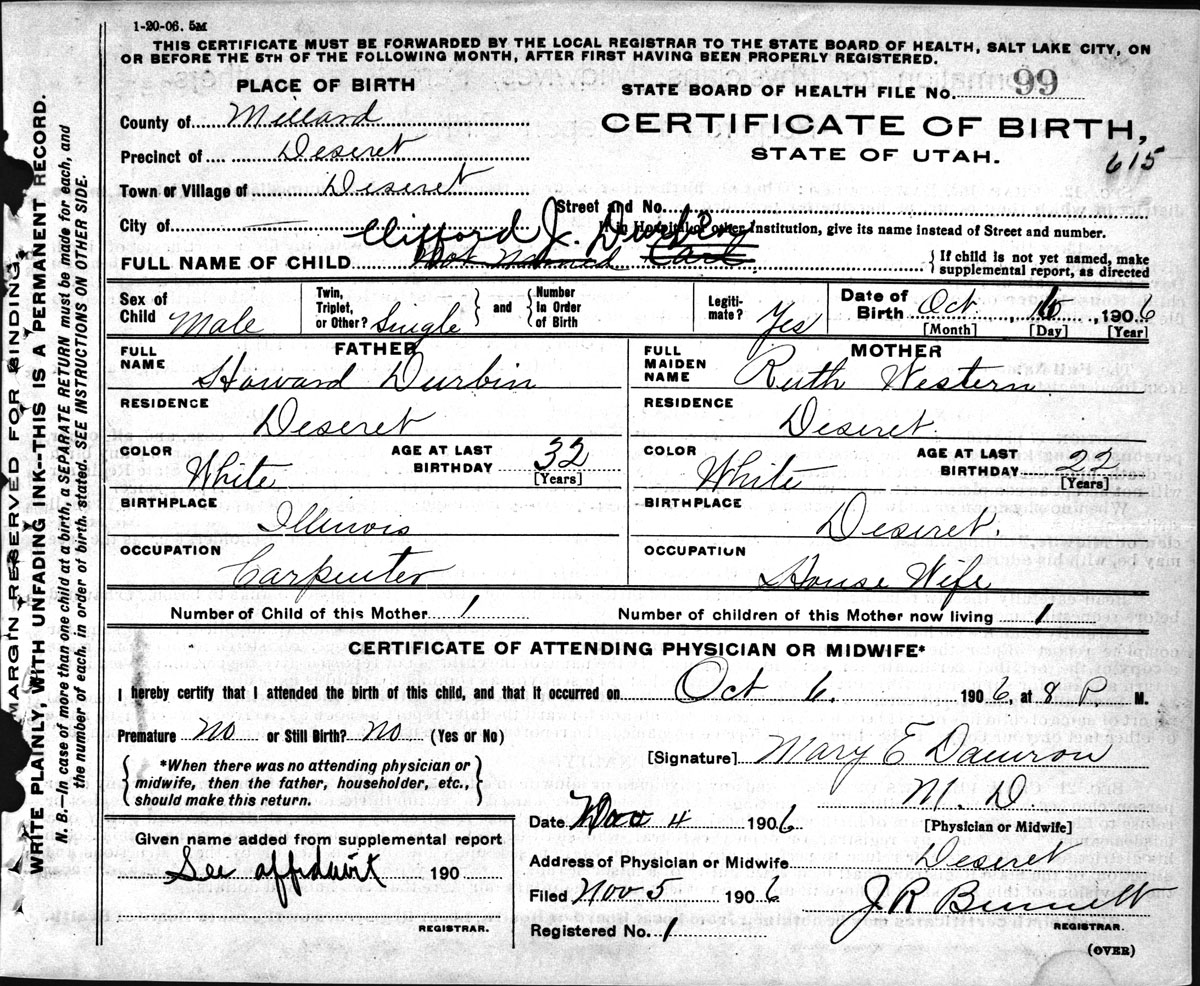 1-20-06. 5M
THIS CERTIFICATE MUST BE FORWARDED BY THE LOCAL REGISTRAR TO THE STATE BOARD OF HEALTH, SALT LAKE CITY, ON
OR BEFORE THE 5TH OF THE FOLLOWING MONTH, AFTER FIRST HAVING BEEN PROPERLY REGISTERED.
MARGIN RESERVED FOR BINDING.
WRITE PLAINLY, WITH UNFADING INK--THIS IS A PERMANENT RECORD.
N. B.—In case of more than one child at a birth, a SEPARATE RETURN must be made for each, and
the number of each, in order of birth, stated. SEE INSTRUCTIONS ON OTHER SIDE.
PLACE OF BIRTH
STATE BOARD OF HEALTH FILE NO. 99
County of Millard
CERTIFICATE OF BIRTH,
Precinct of Deseret
STATE OF UTAH.
615
Town or Village of Deseret
Street and No.
City of
If in Hospital or other Institution, give its name instead of Street and number.
Clifford J. Durbin
FULL NAME OF CHILD Not Named Carl
If child is not yet named, make
supplemental report, as directed
Sex of Child Male
Twin, Triplet, or Other? Single and Number In Order of Birth
Legitimate? Yes
Date of Birth Oct. 6, 1906
[Month] [Day] [Year]
FATHER
FULL NAME Howard Durbin
RESIDENCE Deseret
COLOR White AGE AT LAST BIRTHDAY 32
[Years]
BIRTHPLACE Illinois
OCCUPATION Carpenter
MOTHER
FULL MAIDEN NAME Ruth Western
RESIDENCE Deseret.
COLOR White AGE AT LAST BIRTHDAY 22
[Years]
BIRTHPLACE Deseret.
OCCUPATION House Wife
Number of Child of this Mother 1 Number of children of this Mother now living 1
CERTIFICATE OF ATTENDING PHYSICIAN OR MIDWIFE*
I hereby certify that I attended the birth of this child, and that it occurred on Oct 6. 1906, at 8 P M.
Premature No or Still Birth? No (Yes or No)
[Signature] Mary E Damron
*When there was no attending physician or
midwife, then the father, householder, etc.,
should make this return.
M. D
[Physician or Midwife]
Date 4 1906
Given name added from supplemental report
See affidavit 190
REGISTRAR.
Address of Physician or Midwife Deseret
Filed Nov 5 1906 J R Bennett
Registered No. 1 REGISTRAR.
(OVER)